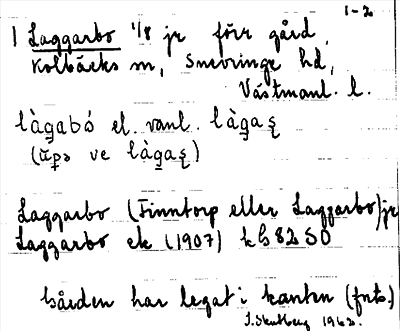 1-2
1 Laggarbo 1/8 jr förr gård,
Kolbäcks sn, Snevringe hd,
Västmanl. l.
làgabó el. vanl. làgas̨
(ŭpə ve làgas̨)
Laggarbo (Finntorp eller Laggarbo) jr
Laggarbo ek (1907) kb 82 SO
Gården har legat i kanten (forts.)
1963.